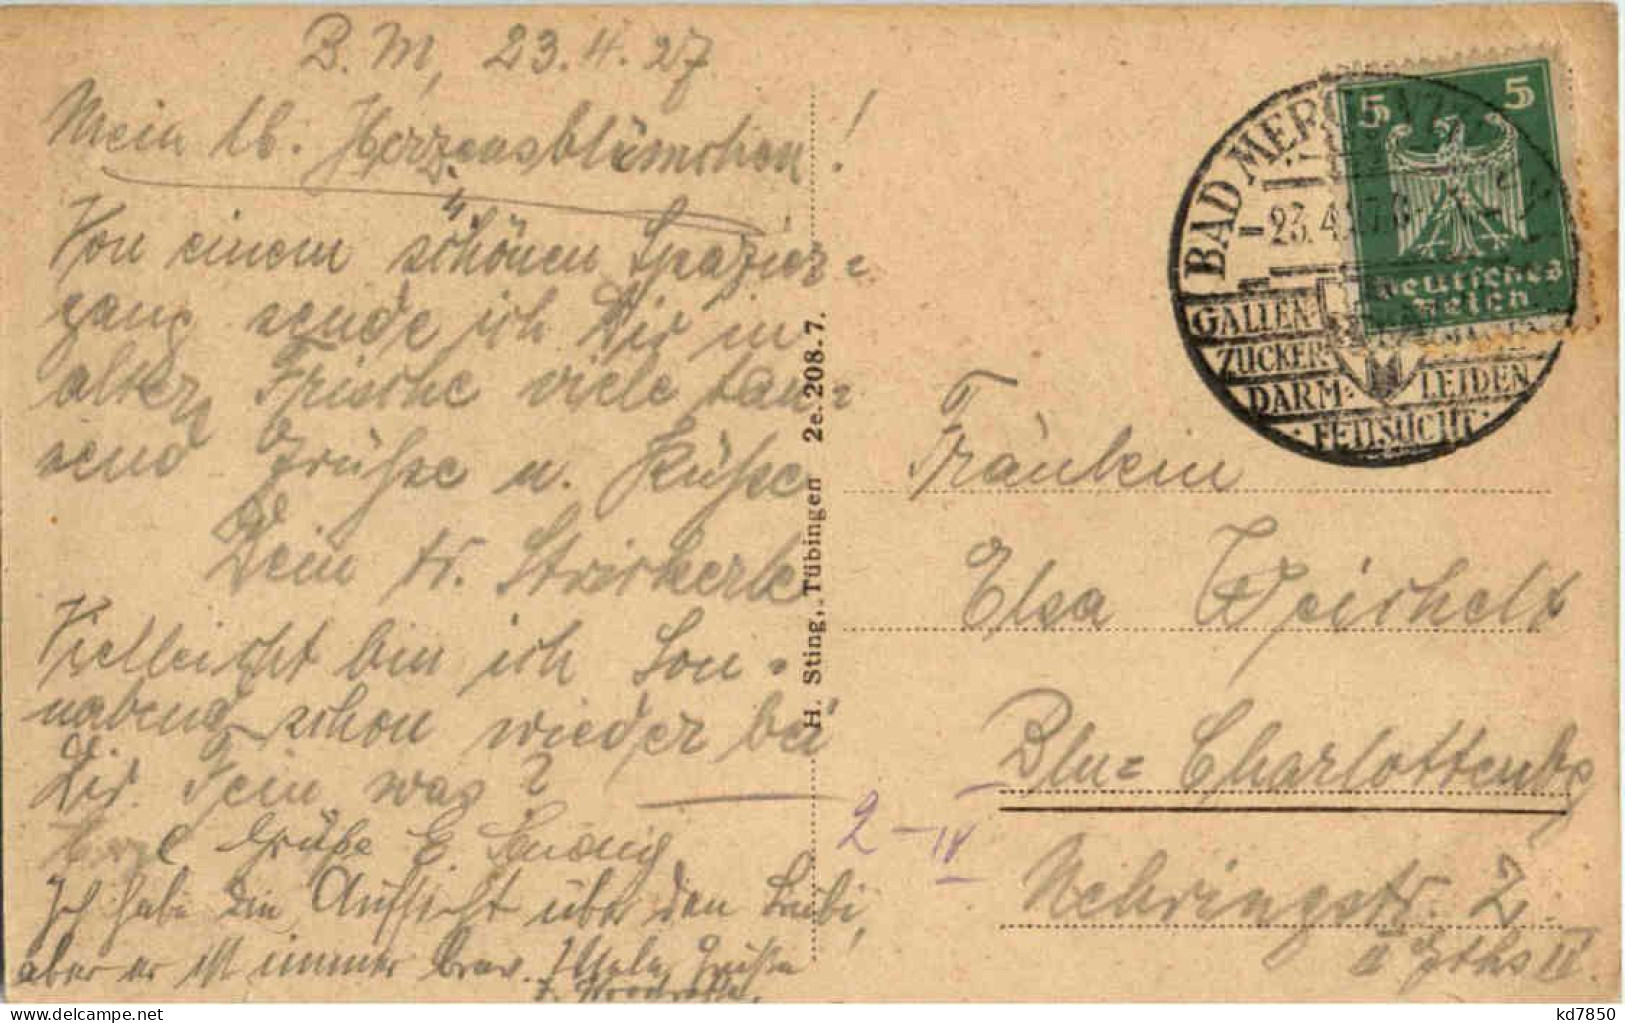 B. M, 23.4.27
Mein lb. Herzensblümchen!
Von einem "schönen Spazier=
gang sende ich Dir in
alter Frische viele tau=
send Grüße u. Küsse
Dein tr.
Vielleicht bin ich Son=
nabend schon wieder bei
Dir. Fein was?
Grüße E. Ludwig
Ich habe die Aufsicht über den Bubi,
aber er ist immer brav. Viele Grüße
H. Sting, Tübingen 2e. 208-7.
BAD MERGENTHEIM
-23.4.27.6-
GALLEN-
ZUCKER-
DARM- LEIDEN
FETTSUCHT
5 5
Deutsches
Reich
Fräulein
Elsa Weichelt
Bln= Charlottenbg
Nehringstr. 2
II Gths IV
2-IV
kd7850